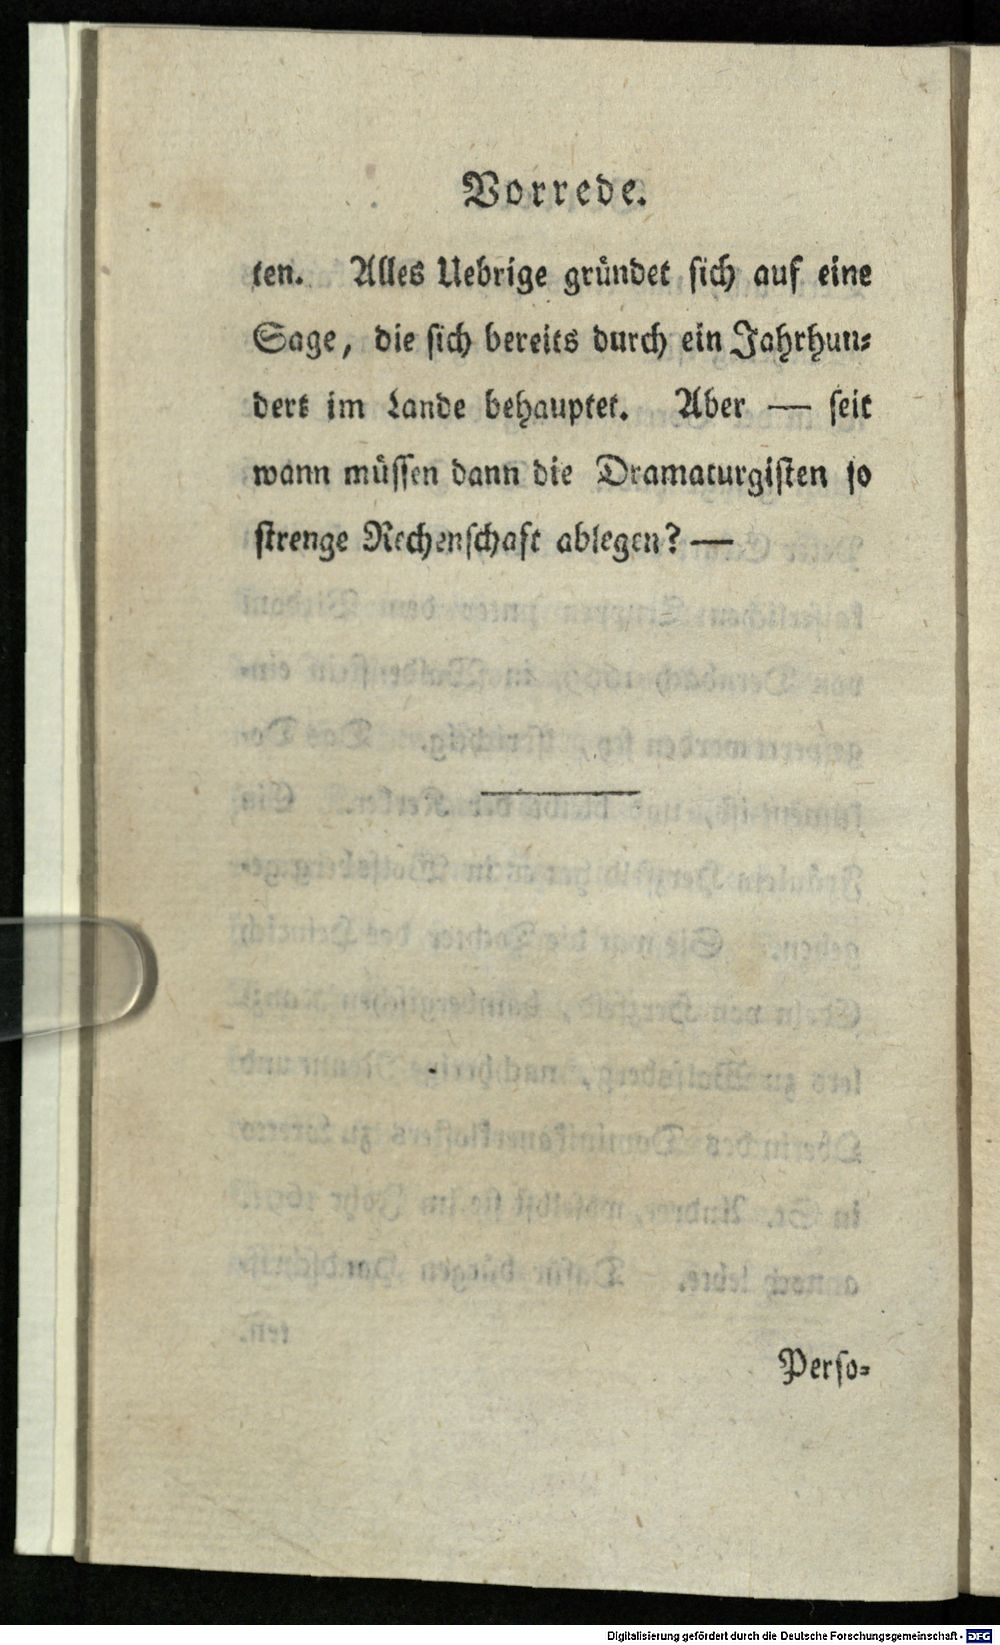 Vorrede.
ten. Alles Uebrige gründet ſich auf eine
Sage, die ſich bereits durch ein Jahrhun⸗
dert im Lande behauptet. Aber — ſeit
wann müſſen dann die Dramaturgiſten ſo
ſtrenge Rechenſchaft ablegen? —
Perſo⸗
Digitalisierung gefördert durch die Deutsche Forschungsgemeinschaft - DFG